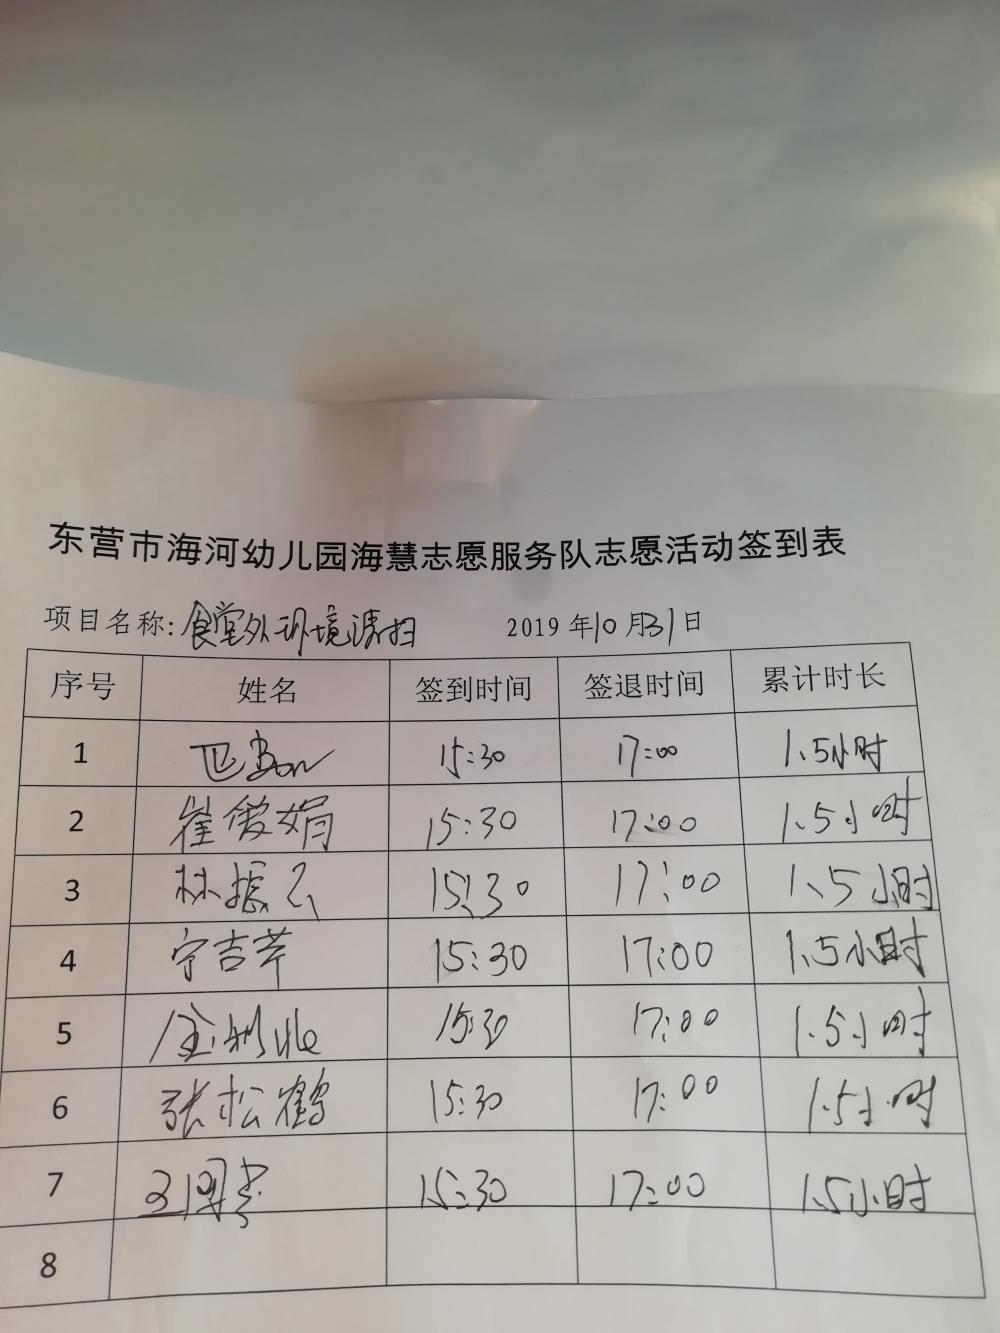 东营市海河幼儿园海慧志愿服务队志愿活动签到表
项目名称:食堂外环境清扫 2019年10月31日
序号 姓名 签到时间 签退时间 累计时长
1 15:30 17:00 1.5小时
2 崔爱娟 15:30 17:00 1.5小时
3 林振云 15:30 17:00 1.5小时
4 宁吉芹 15:30 17:00 1.5小时
5 15:30 17:00 1.5小时
6 张松鹤 15:30 17:00 1.5小时
7 15:30 17:00 1.5小时
8